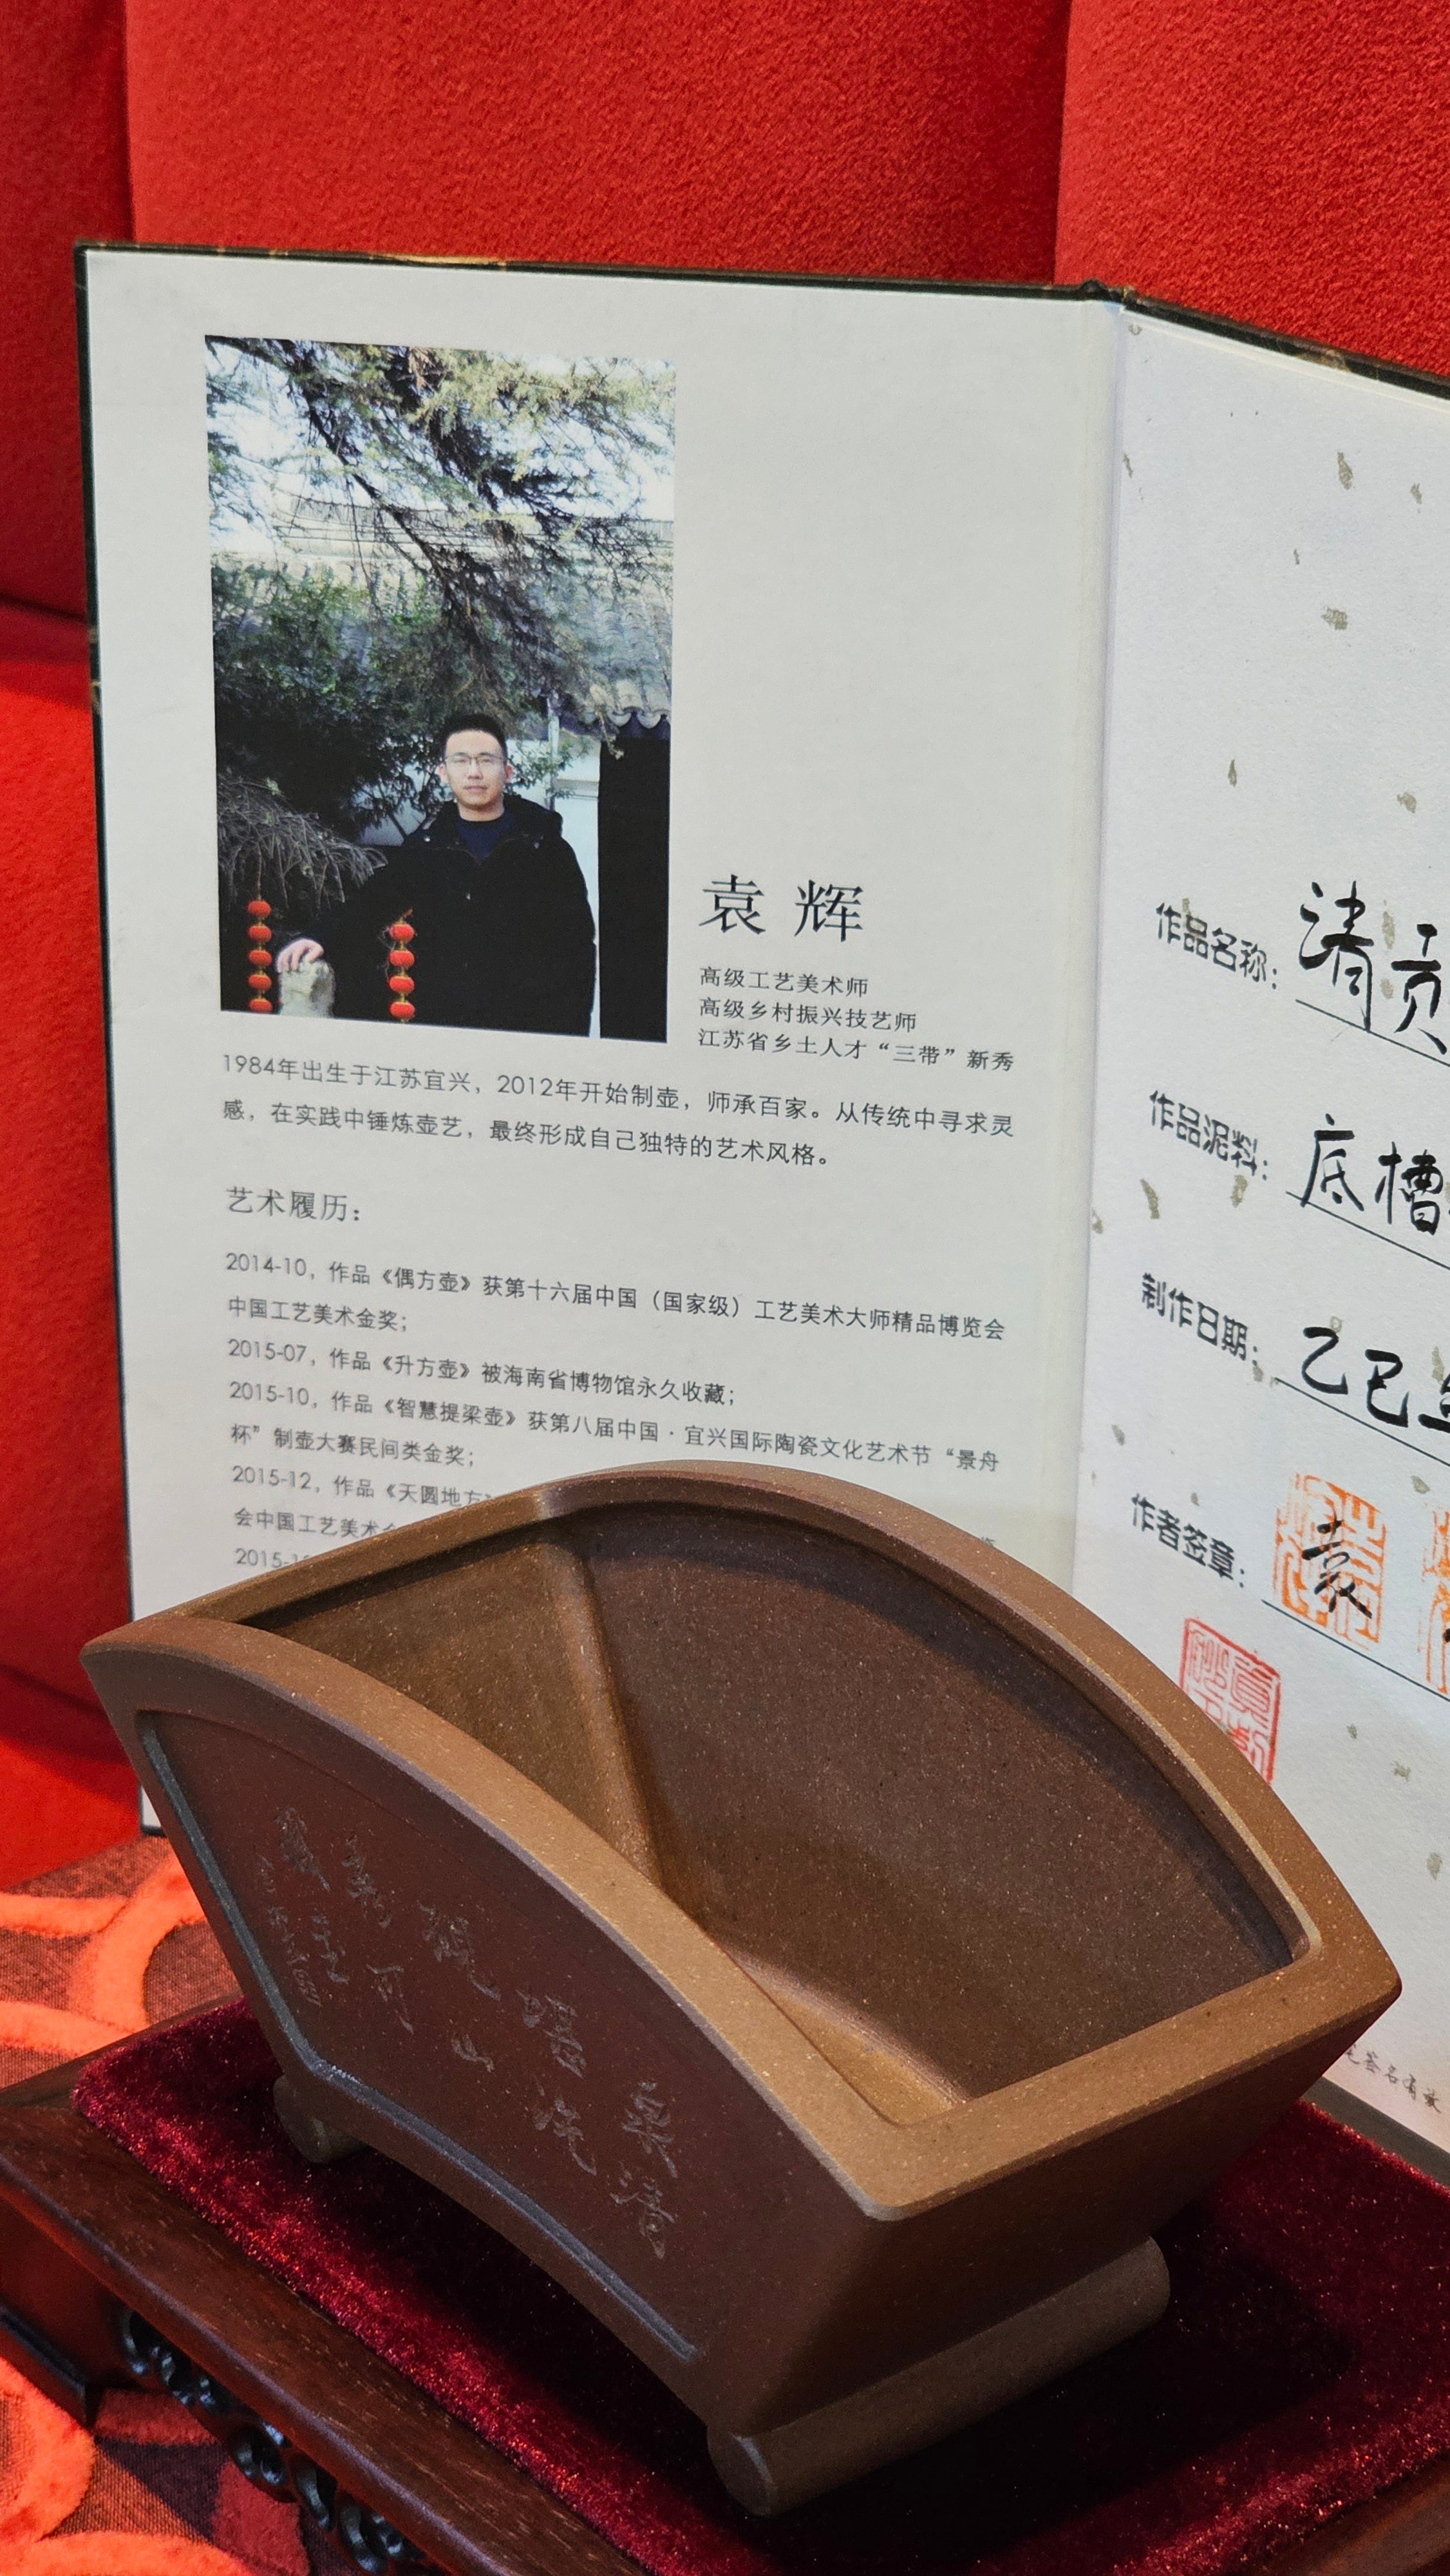 袁辉
高级工艺美术师
高级乡村振兴技艺师
江苏省乡土人才“三带”新秀
1984年出生于江苏宜兴，2012年开始制壶，师承百家。从传统中寻求灵
感，在实践中锤炼壶艺，最终形成自己独特的艺术风格。
艺术履历：
2014-10，作品《偶方壶》获第十六届中国（国家级）工艺美术大师精品博览会
中国工艺美术金奖；
2015-07，作品《升方壶》被海南省博物馆永久收藏；
2015-10，作品《智慧提梁壶》获第八届中国·宜兴国际陶瓷文化艺术节“景舟
杯”制壶大赛民间类金奖；
2015-12，作品《天圆地方
会中国工艺美术
作品名称：清贡
作品泥料：底槽
制作日期：乙巳
作者签章：袁
签名有效
泉清
堪洗
砚山
可